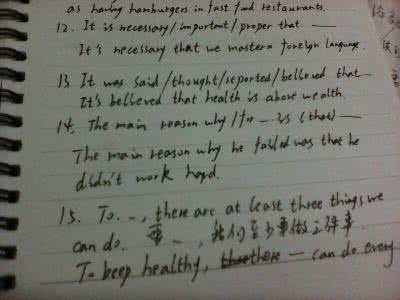 as having hamburgers in fast food restaurants.
12. It is necessary/important/proper that —
It's necessary that we master a foreign language.
13 It was said/thought/reported/believed that
It's believed that health is above wealth.
14. The main reason why/for … is (that) —
The main reason why he failed was that he
didn't work hard.
15. To …, there are at least three things we
can do. 要…, 我们至少要做三件事
To keep healthy, — can do every